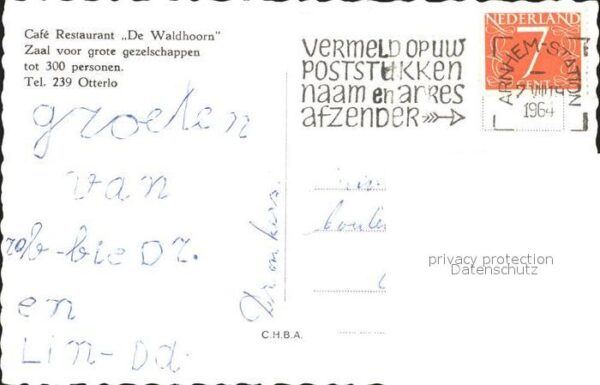 Café Restaurant „De Waldhoorn"
Zaal voor grote gezelschappen
tot 300 personen.
Tel. 239 Otterlo
VERMELD OP UW
POSTSTUKKEN
NAAM en ADRES
AFZENDER
NEDERLAND
7
CENT
ARNHEM-STATION
1964
groeten
van
rob-bie Dr.
en
Lin-da.
privacy protection
Datenschutz
C.H.B.A.